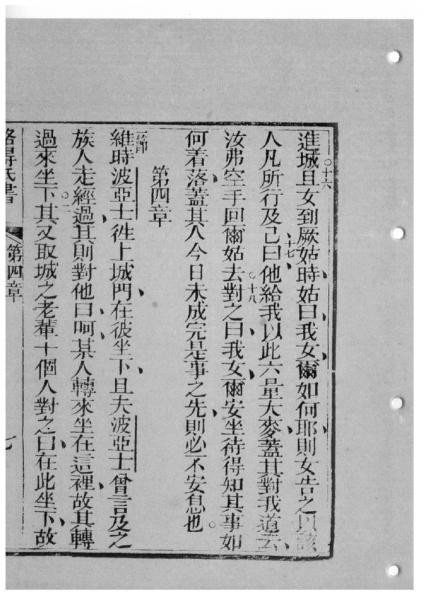 進城且女到厥姑時姑曰我女爾如何耶則女告之以該
十六
人凡所行及己曰他給我以此六量大麥蓋其對我道云
十七
汝弗空手回爾姑去對之曰我女爾安坐待得知其事如
十八
何着落蓋其人今日未成完是事之先則必不安息也
第四章
維時波亞士徃上城門在彼坐下且夫波亞士曾言及之
一節
族人走經過其則對他曰呵某人轉來坐在這裡故其轉
過來坐下其又取城之老輩十個人對之曰在此坐下故
二
路得氏書
第四章
七